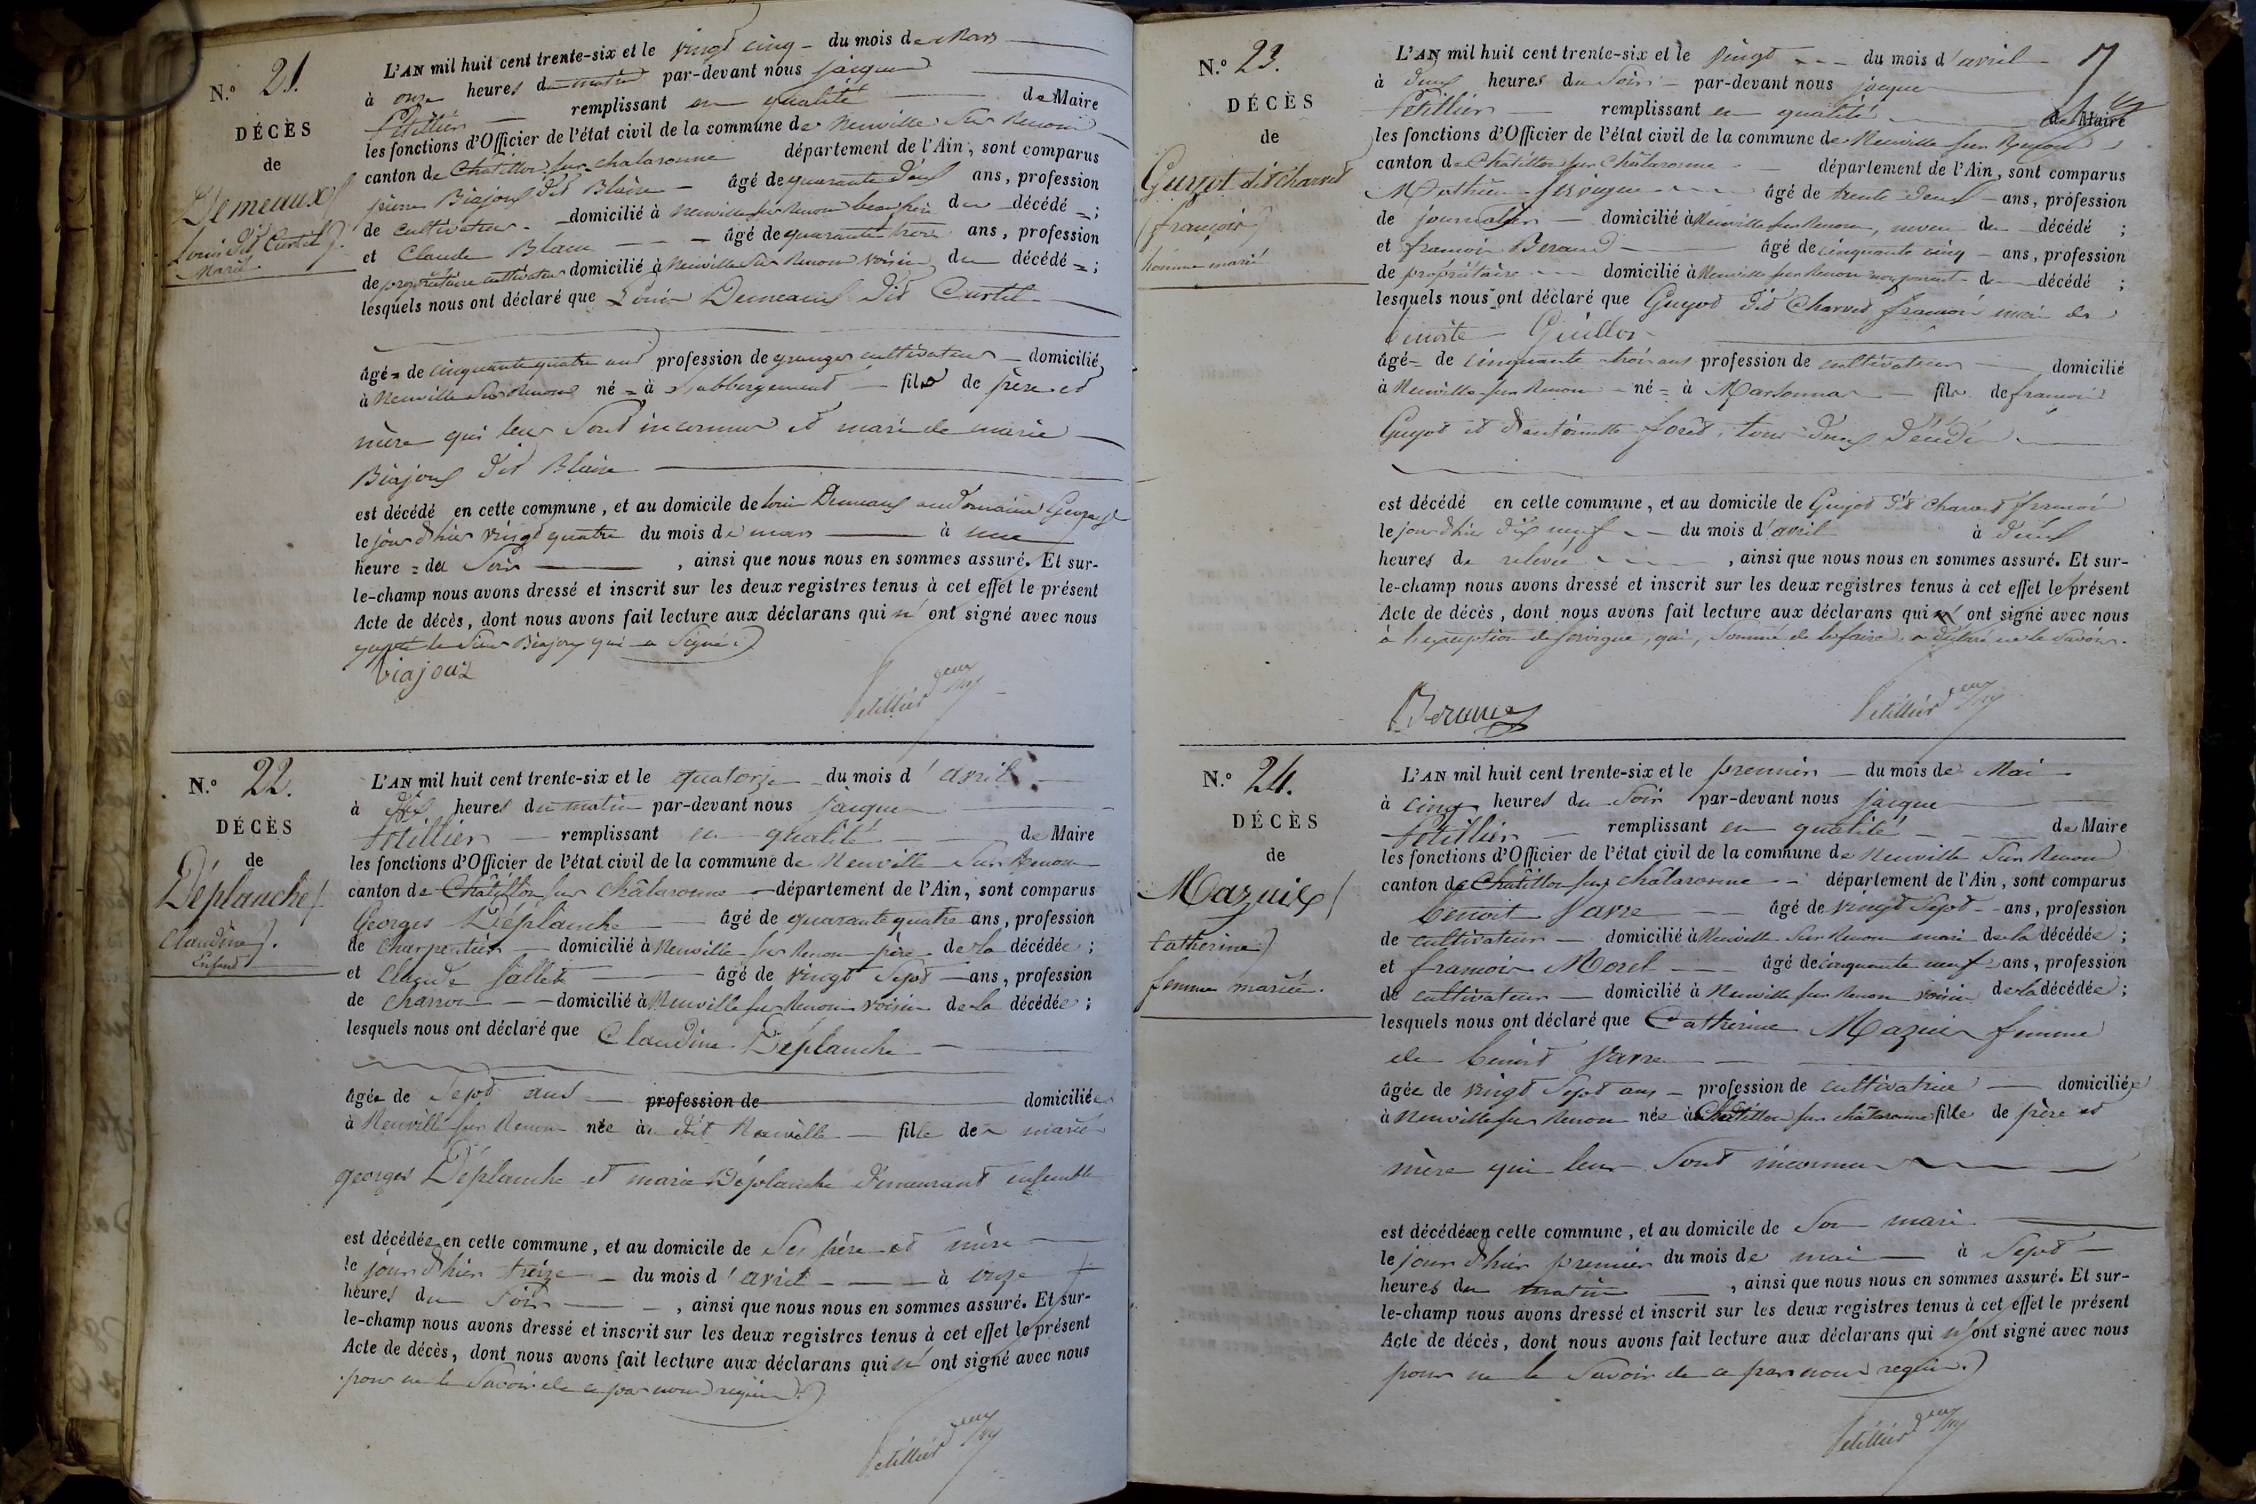 N.º 21.
DÉCÈS
de
Demeaux
Louis dit Curtil
Marié
L'AN mil huit cent trente-six et le vingt cinq du mois de Mars
à onze heures du matin par-devant nous jacques
Petillier remplissant en qualité de Maire
les fonctions d'Officier de l'état civil de la commune de Neuville sur Renom
canton de Chatillon sur chalaronne département de l'Ain, sont comparus
pierre Biajoux dit Blaise âgé de quarante deux ans, profession
de cultivateur domicilié à Neuville sur Renom beau frère du décédé ;
et Claude Blanc âgé de quarante trois ans, profession
de propriétaire cultivateur domicilié à Neuville sur Renom voisin du décédé ;
lesquels nous ont déclaré que Louis Demeaux dit Curtil
âgé de cinquante quatre ans profession de granger cultivateur domicilié
à Neuville sur Renom né à fils de père et
mère qui leur sont inconnus et mari de marie
Biajoux dit Blaise
est décédé en cette commune, et au domicile de Louis Demeaux au domaine
le jour d'hier vingt quatre du mois de mars à une
heure du soir , ainsi que nous nous en sommes assuré. Et sur-
le-champ nous avons dressé et inscrit sur les deux registres tenus à cet effet le présent
Acte de décès, dont nous avons fait lecture aux déclarans qui n' ont signé avec nous
le sieur Biajoux qui a signé.
Biajoux
Petillier
N.º 22.
DÉCÈS
de
Déplanche
Claudine
Enfant
L'AN mil huit cent trente-six et le quatorze du mois d'avril
à dix heures du matin par-devant nous jacques
Petillier remplissant en qualité de Maire
les fonctions d'Officier de l'état civil de la commune de Neuville sur Renom
canton de Châtillon sur châlaronne département de l'Ain, sont comparus
Georges Déplanche âgé de quarante quatre ans, profession
de charpentier domicilié à Neuville sur Renom père de la décédée ;
et Claude âgé de vingt sept ans, profession
de charron domicilié à Neuville sur Renom voisin de la décédée ;
lesquels nous ont déclaré que Claudine Déplanche
âgée de sept ans profession de domiciliée
à Neuville sur Renom née au dit Neuville fille de
georges Déplanche et marie Déplanche demeurant ensemble
est décédée en cette commune, et au domicile de ses père et mère
le jour d'hier treize du mois d'avril à onze
heures du soir , ainsi que nous nous en sommes assuré. Et sur-
le-champ nous avons dressé et inscrit sur les deux registres tenus à cet effet le présent
Acte de décès, dont nous avons fait lecture aux déclarans qui n' ont signé avec nous
pour ne le savoir de ce par nous requis.
Petillier
N.º 23.
DÉCÈS
de
Guyot dit Charvet
françois
homme marié
L'AN mil huit cent trente-six et le vingt du mois d'avril
à deux heures du soir par-devant nous jacques
Petillier remplissant en qualité de Maire
les fonctions d'Officier de l'état civil de la commune de Neuville sur Renom
canton de Châtillon sur Châlaronne département de l'Ain, sont comparus
Mathieu âgé de trente deux ans, profession
de journalier domicilié à Neuville sur Renom, neveu du décédé ;
et françois Beraud âgé de cinquante cinq ans, profession
de propriétaire domicilié à Neuville sur Renom non parent du décédé ;
lesquels nous ont déclaré que Guyot dit Charvet françois mari de
benoite
âgé de cinquante trois ans profession de cultivateur domicilié
à Neuville sur Renom né à Marsonnas fils de françois
Guyot et d'antoinette forêt, tous deux décédés
est décédé en cette commune, et au domicile de Guyot dit Charvet françois
le jour d'hier dix neuf du mois d'avril à deux
heures de relevée , ainsi que nous nous en sommes assuré. Et sur-
le-champ nous avons dressé et inscrit sur les deux registres tenus à cet effet le présent
Acte de décès, dont nous avons fait lecture aux déclarans qui ont signé avec nous
à l'exception de qui, sommé de le faire, a déclaré ne le savoir.
Beraud
Petillier
N.º 24.
DÉCÈS
de
Mazuir
Catherine
femme mariée.
L'AN mil huit cent trente-six et le premier du mois de Mai
à cinq heures du soir par-devant nous jacques
Petillier remplissant en qualité de Maire
les fonctions d'Officier de l'état civil de la commune de Neuville sur Renom
canton de Châtillon sur châlaronne département de l'Ain, sont comparus
benoit Varre âgé de vingt sept ans, profession
de cultivateur domicilié à Neuville sur Renom mari de la décédée ;
et françois Morel âgé de cinquante neuf ans, profession
de cultivateur domicilié à Neuville sur Renom voisin de la décédée ;
lesquels nous ont déclaré que Catherine Mazuir femme
de benoit Varre
âgée de vingt sept ans profession de cultivatrice domiciliée
à Neuville sur Renom née à Châtillon sur châlaronne fille de père et
mère qui leur sont inconnus
est décédée en cette commune, et au domicile de son mari
le jour d'hier premier du mois de mai à sept
heures du matin , ainsi que nous nous en sommes assuré. Et sur-
le-champ nous avons dressé et inscrit sur les deux registres tenus à cet effet le présent
Acte de décès, dont nous avons fait lecture aux déclarans qui n'ont signé avec nous
pour ne le savoir de ce par nous requis.
Petillier